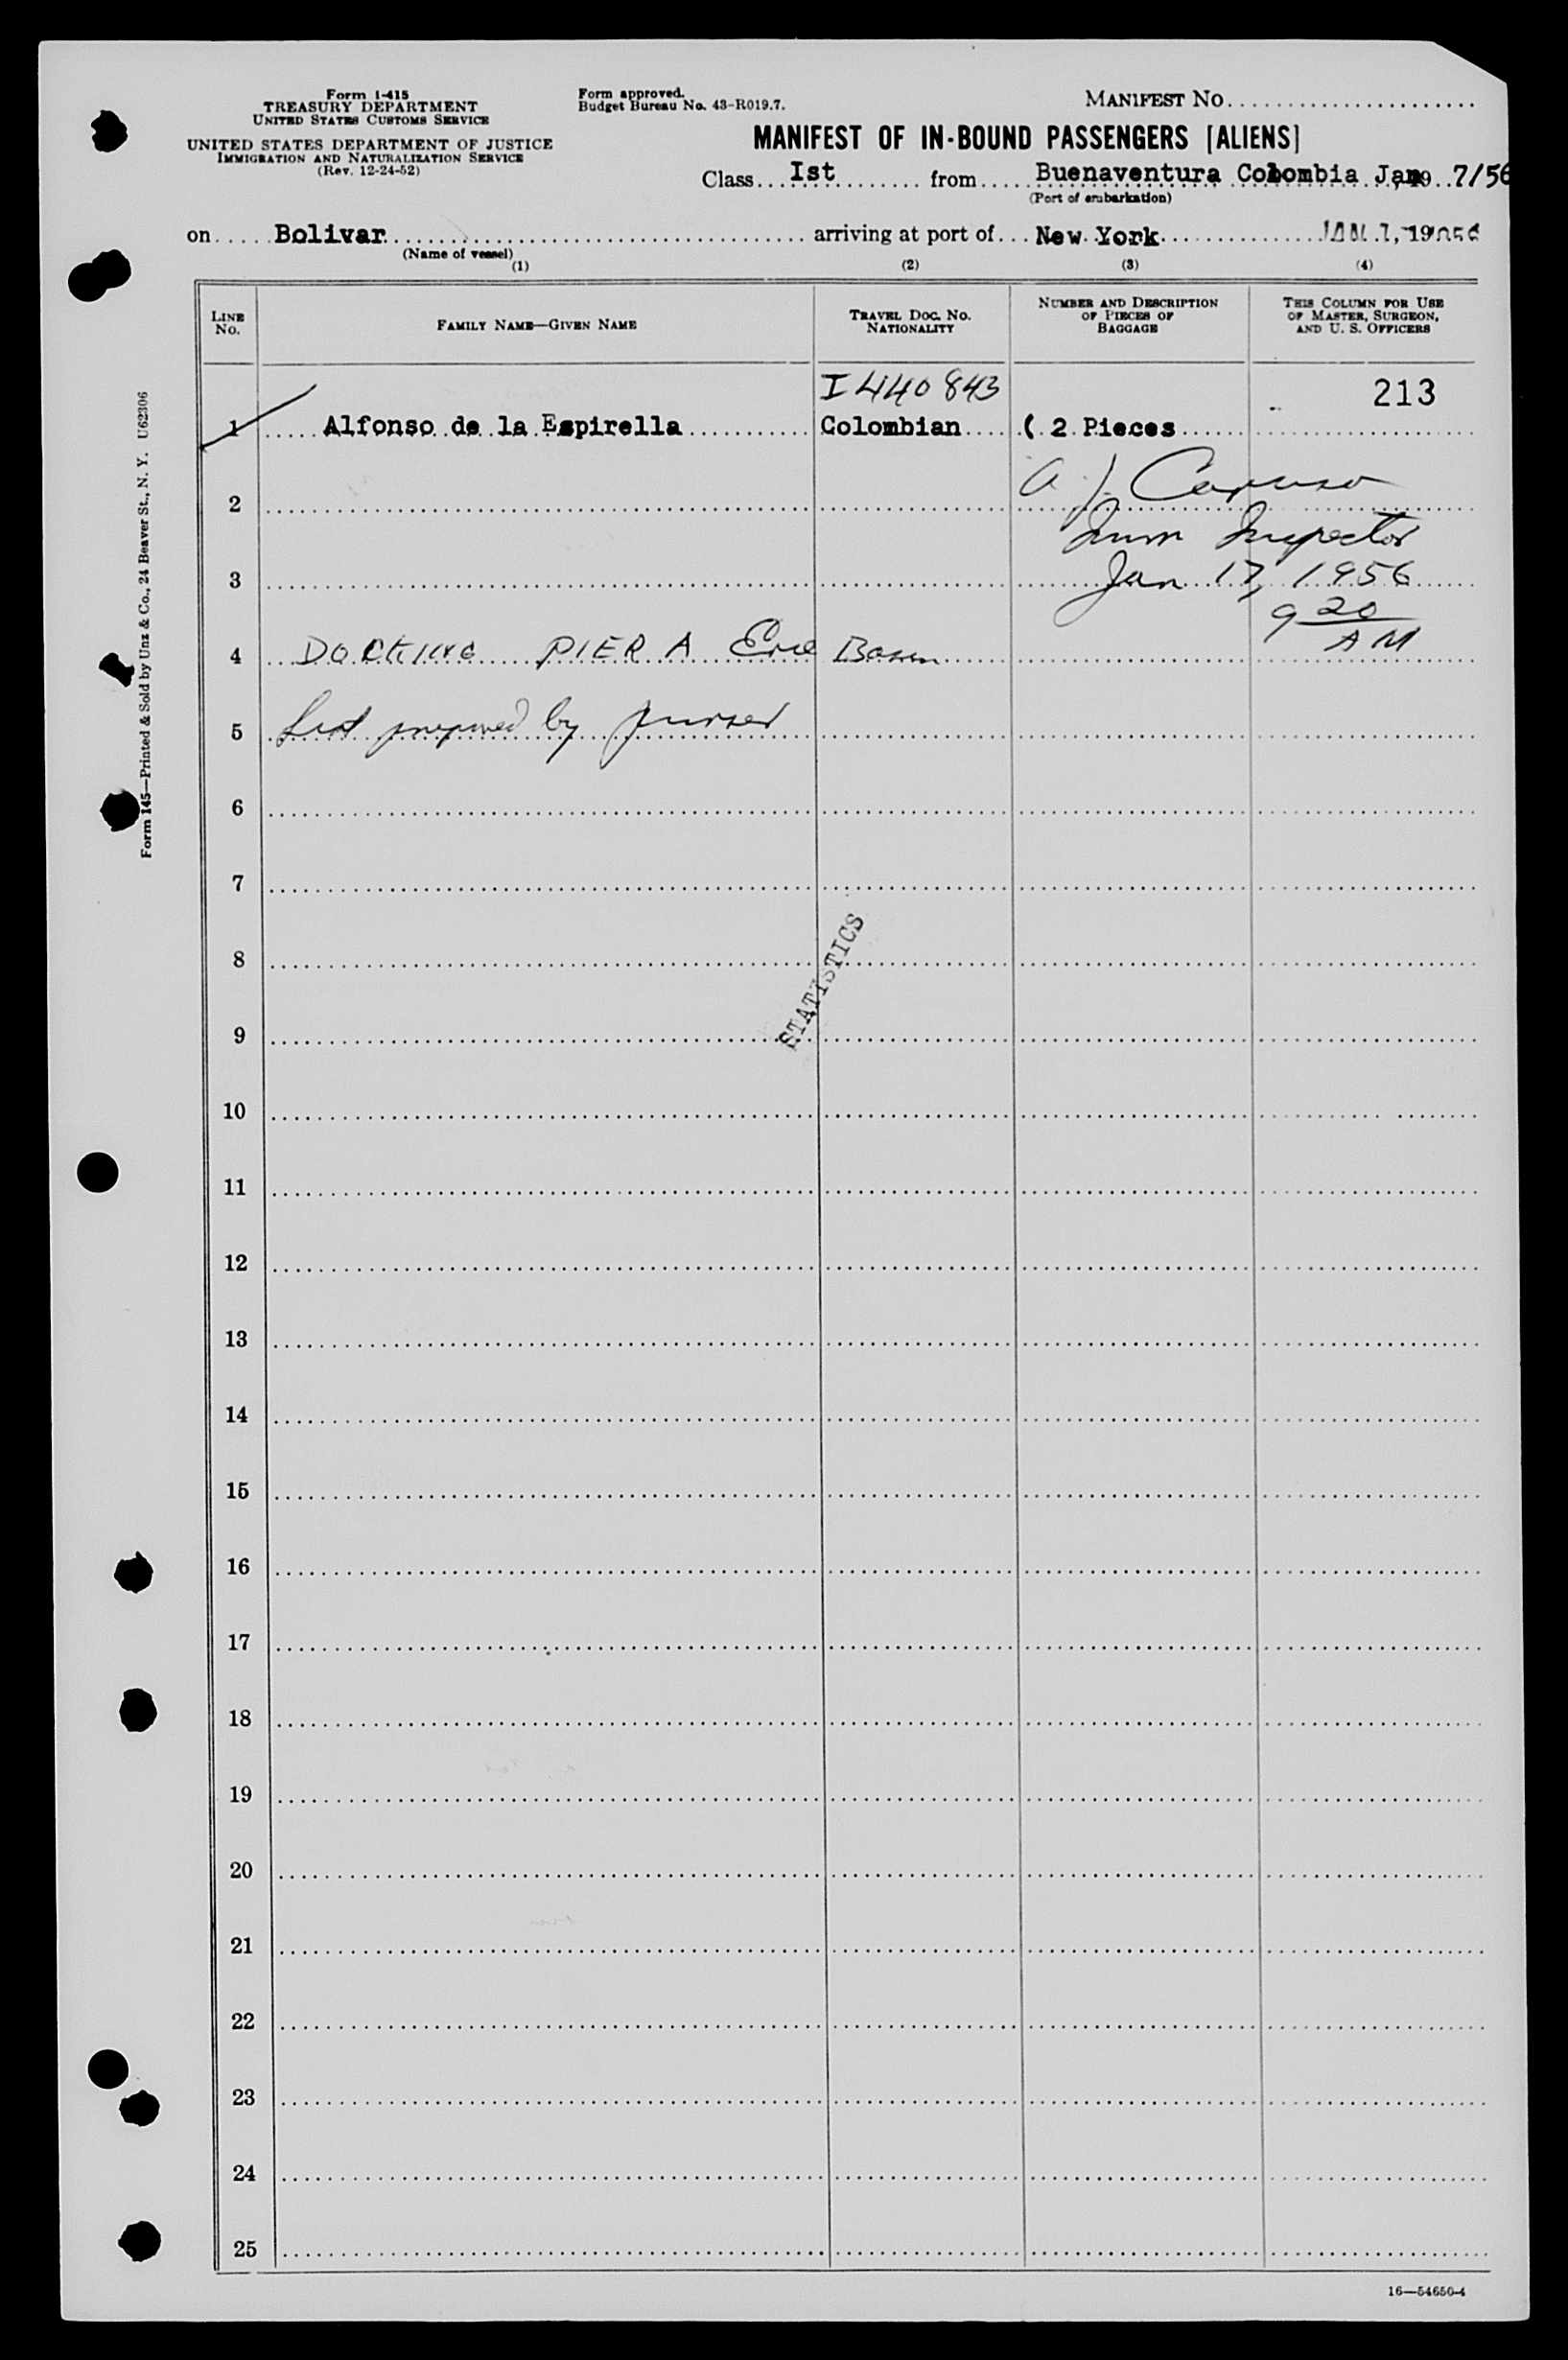 Form I-415
TREASURY DEPARTMENT
UNITED STATES CUSTOMS SERVICE
UNITED STATES DEPARTMENT OF JUSTICE
IMMIGRATION AND NATURALIZATION SERVICE
(Rev. 12-24-52)
Form approved.
Budget Bureau No. 43-R019.7.
MANIFEST NO.
MANIFEST OF IN-BOUND PASSENGERS [ALIENS]
Class Ist from Buenaventura Colombia Jan 7/56
(Port of embarkation)
on Bolivar arriving at port of New York
(Name of vessel)
(1) (2) (3) (4)
LINE NO.
FAMILY NAME—GIVEN NAME
TRAVEL DOC. NO. NATIONALITY
NUMBER AND DESCRIPTION OF PIECES OF BAGGAGE
THIS COLUMN FOR USE OF MASTER, SURGEON, AND U. S. OFFICERS
I 440 843
213
1 Alfonso de la Espirella Colombian ( 2 Pieces
A J. Caruso
2
Imm Inspector
3 Jan 17, 1956
9 20 AM
4 DOCKING PIER A Erie Basin
5 List prepared by purser
6
7
8
STATISTICS
9
10
11
12
13
14
15
16
17
18
19
20
21
22
23
24
25
16—54650-4
Form 145—Printed & Sold by Unz & Co., 24 Beaver St., N. Y. U62306